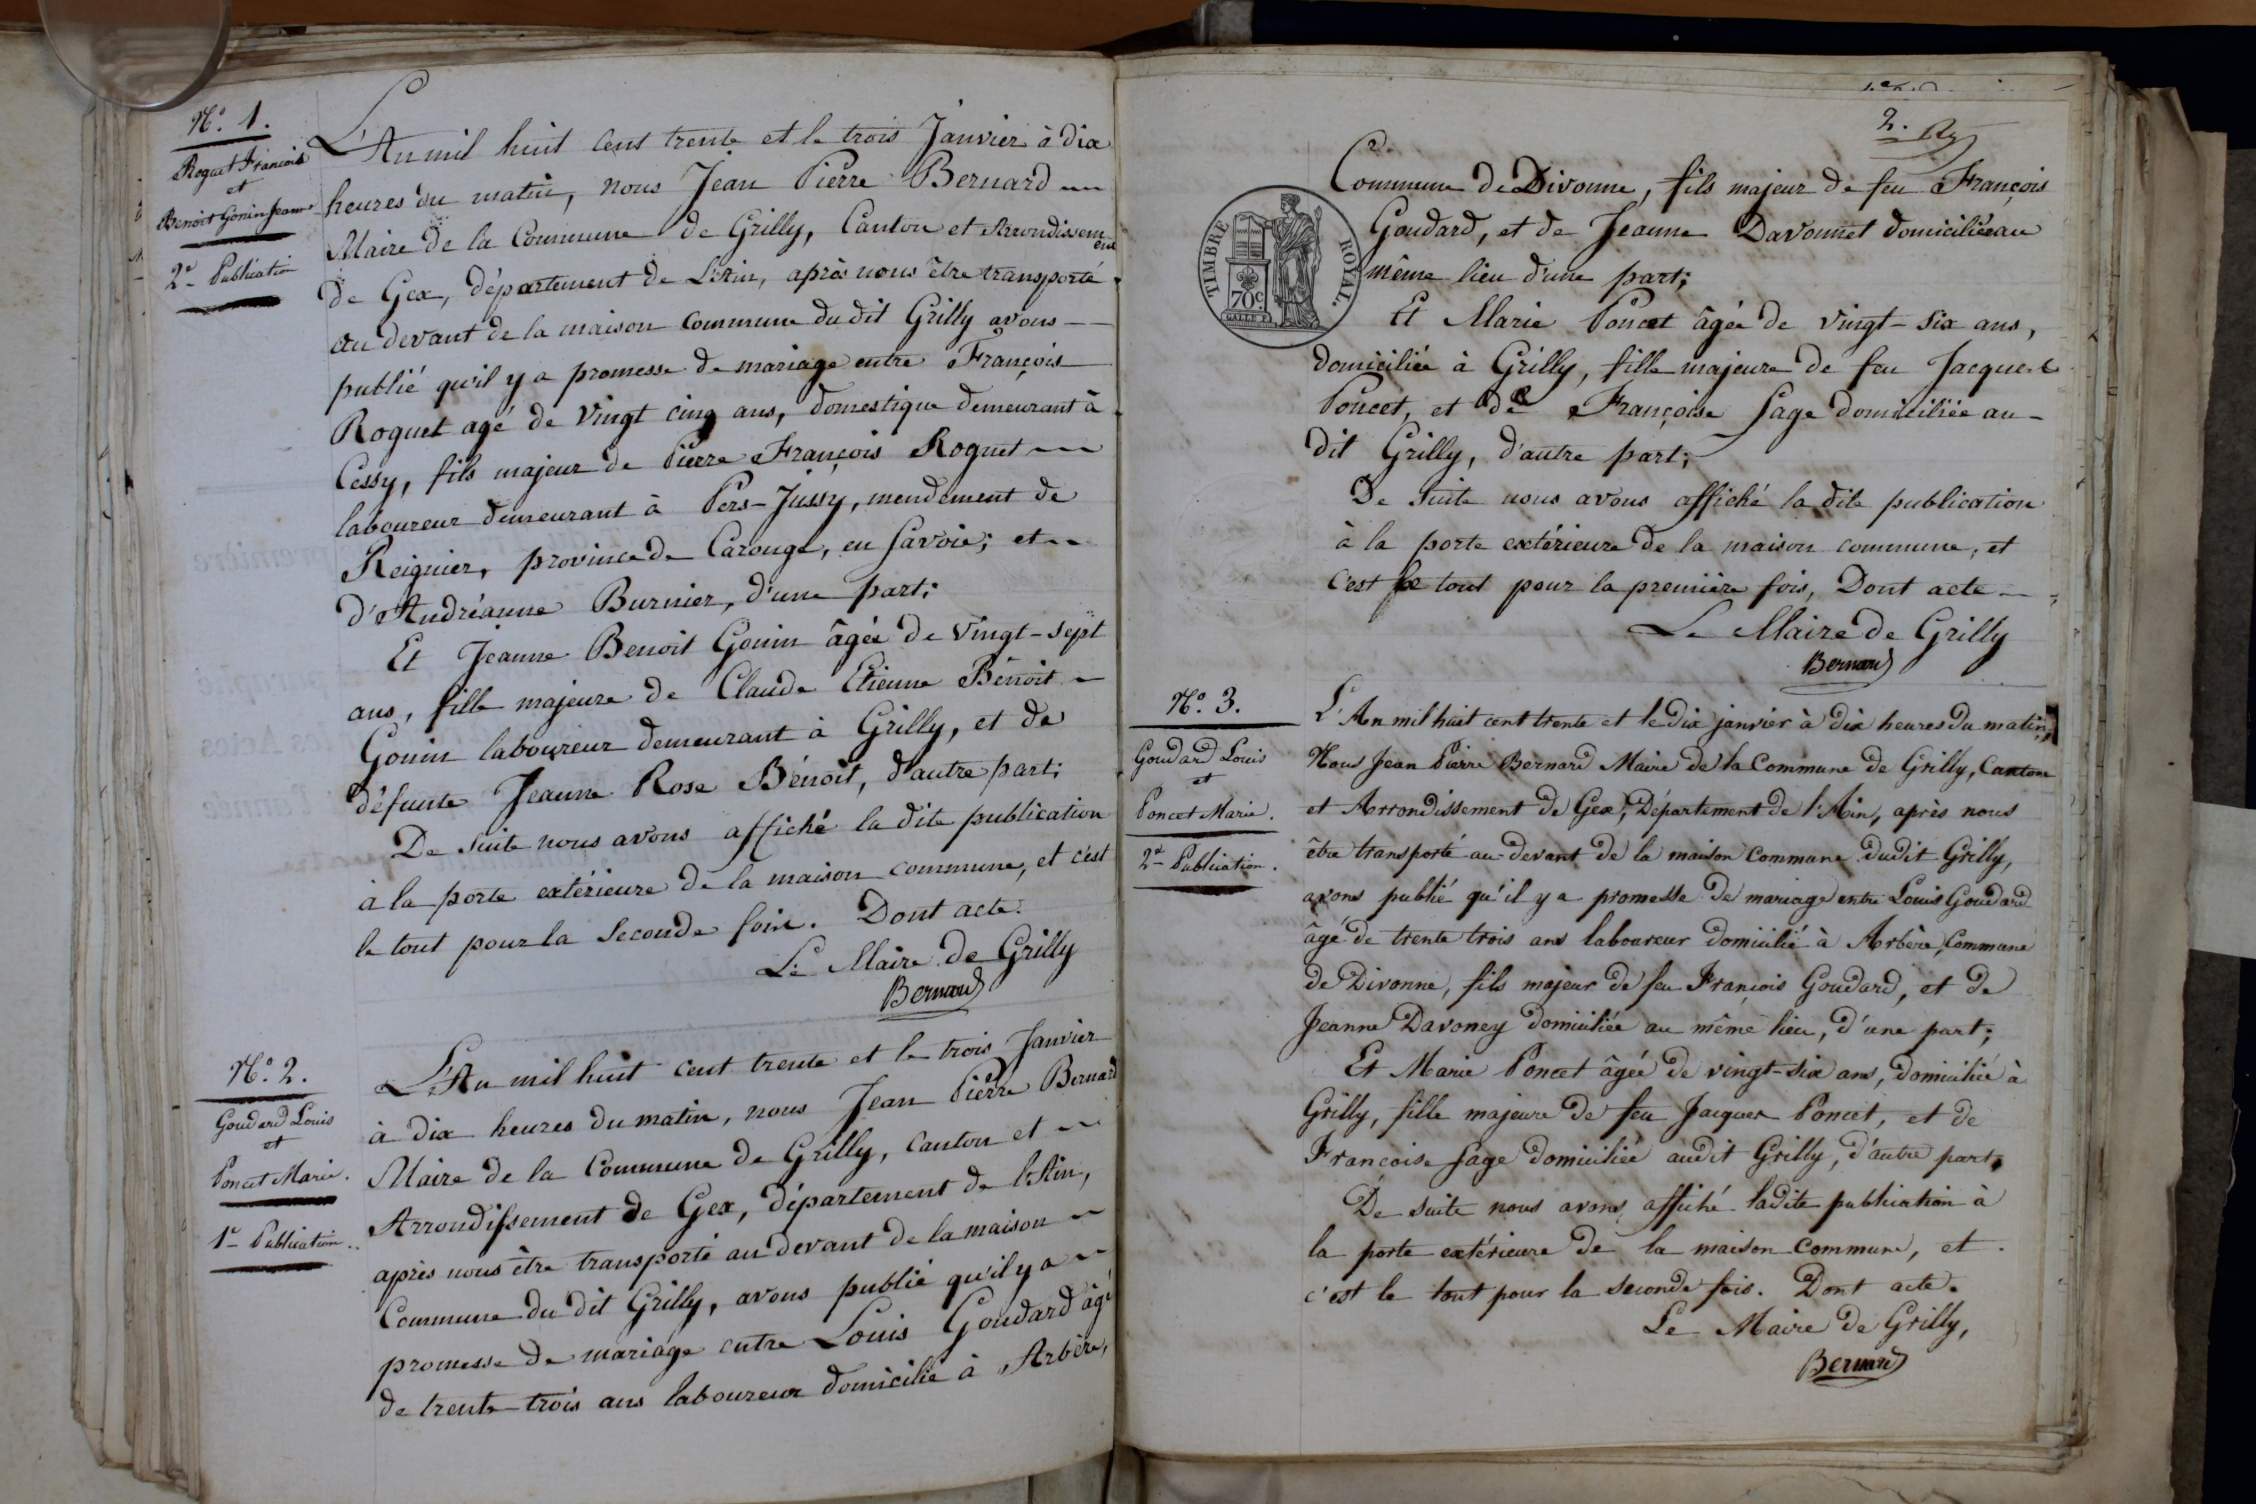 N.° 1.
Roguet François
et
Benoit Gonin Jeanne
2.e Publication
L'An mil huit cent trente et le trois Janvier à dix
heures du matin, nous Jean Pierre Bernard
Maire de la Commune de Grilly, Canton et Arrondissement
de Gex, département de L'Ain, après nous être transporté
au devant de la maison commune du dit Grilly avons
publié qu'il y a promesse de mariage entre François
Roguet agé de vingt cinq ans, domestique demeurant à
Cessy, fils majeur de Pierre François Roguet
laboureur demeurant à Pers-Jussy, mendement de
Reignier, province de Carouge, en Savoie; et
d'Andréanne Burnier, d'une part;
Et Jeanne Benoit Gonin âgée de vingt-sept
ans, fille majeure de Claude Etienne Bénoit
Gonin laboureur demeurant à Grilly, et de
défunte Jeanne Rose Bénoit, d'autre part;
De suite nous avons affiché la dite publication
à la porte extérieure de la maison commune, et c'est
le tout pour la seconde fois. Dont acte.
Le Maire de Grilly
Bernard
N.° 2.
Goudard Louis
et
Poncet Marie.
1.e Publication.
L'An mil huit cent trente et le trois Janvier
à dix heures du matin, nous Jean Pierre Bernard
Maire de la Commune de Grilly, Canton et
Arrondissement de Gex, département de l'Ain,
après nous être transporté au devant de la maison
Commune du dit Grilly, avons publié qu'il y a
promesse de mariage entre Louis Goudard âgé
de trente-trois ans laboureur domicilié à Arbère,
2.
TIMBRE ROYAL.
70c.
Commune de Divonne, fils majeur de feu François
Goudard, et de Jeanne Davonnet domiciliée au
même lieu d'une part;
Et Marie Poncet âgée de vingt-six ans,
domiciliée à Grilly, fille majeure de feu Jacques
Poncet, et de Françoise Sage domiciliée au
dit Grilly, d'autre part;
De suite nous avons affiché la dite publication
à la porte extérieure de la maison commune, et
c'est le tout pour la première fois, Dont acte
Le Maire de Grilly
Bernard
N.° 3.
Goudard Louis
et
Poncet Marie.
2.e Publication.
L'An mil huit cent trente et le dix janvier à dix heures du matin,
Nous Jean Pierre Bernard Maire de la Commune de Grilly, Canton
et Arrondissement de Gex, Département de l'Ain, après nous
être transporté au-devant de la maison Commune dudit Grilly,
avons publié qu'il y a promesse de mariage entre Louis Goudard
âgé de trente trois ans laboureur domicilié à Arbère, Commune
de Divonne, fils majeur de feu François Goudard, et de
Jeanne Davoney domiciliée au même lieu, d'une part;
Et Marie Poncet âgée de vingt-six ans, domiciliée à
Grilly, fille majeure de feu Jacques Poncet, et de
Françoise Sage domiciliée audit Grilly, d'autre part,
De suite nous avons affiché ladite publication à
la porte extérieure de la maison commune, et
c'est le tout pour la seconde fois. Dont acte.
Le Maire de Grilly,
Bernard